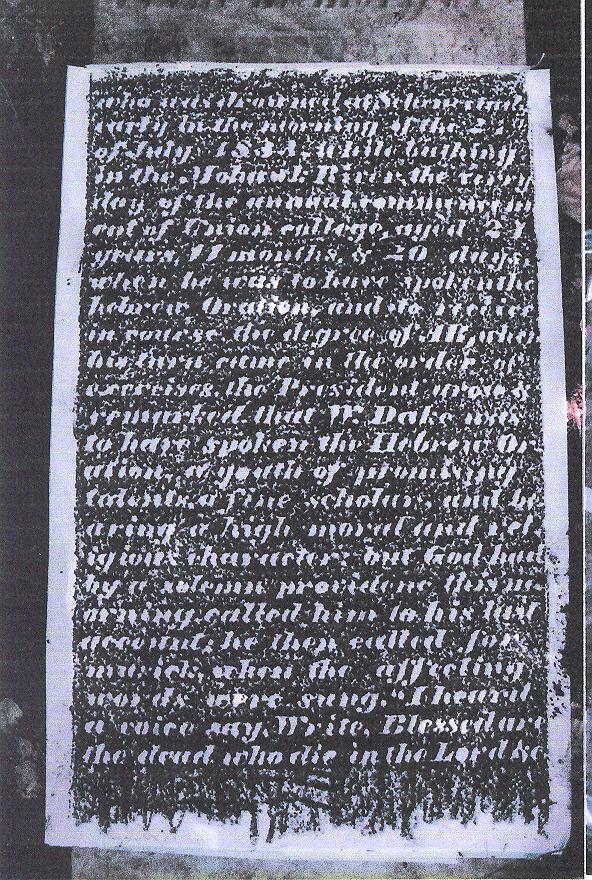 who was drowned at Schenectady
early in the morning of the 27
of July 1831, while bathing
in the Mohawk River, the very
day of the annual commencem
ent of Union college, aged 21
years, 11 months & 20 days,
when he was to have spoken the
hebrew Oration, and to receive
in course the degree of
his turn came in the order of
exercises, the President arose &
remarked, that W. Dake was
to have spoken the Hebrew Or
ation, a youth of promising
talents, a fine scholar, and be
aring a high moral and rel
igious character, but God had
by a solemn providence this m
orning called him to his last
account, he then called for
musick, when the affecting
words were sung. "I heard
a voice say, Write, Blessed are
the dead who die in the Lord &c